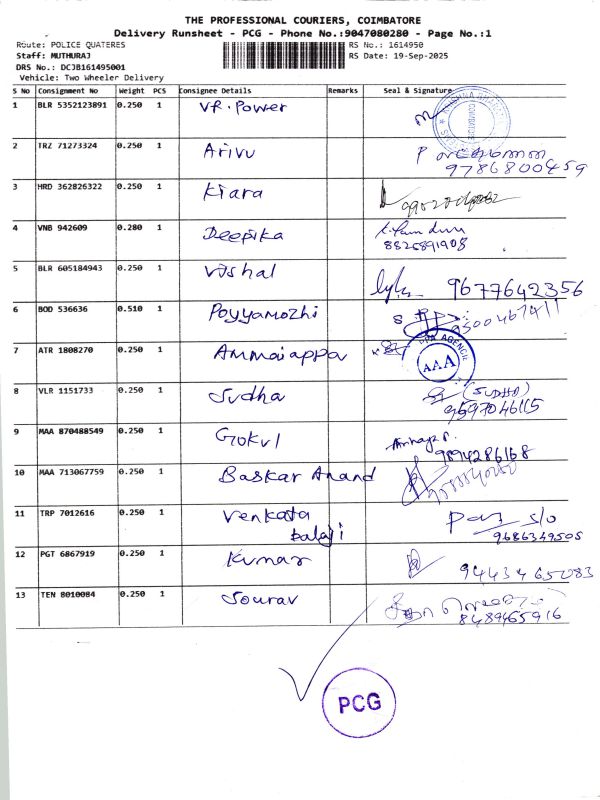 THE PROFESSIONAL COURIERS, COIMBATORE
Delivery Runsheet - PCG - Phone No.:9047080280 - Page No.:1
Route: POLICE QUATERES RS No.: 1614950
Staff: MUTHURAJ RS Date: 19-Sep-2025
DRS No.: DCJB161495001
Vehicle: Two Wheeler Delivery
S No Consignment No Weight PCS Consignee Details Remarks Seal & Signature
1 BLR 5352123891 0.250 1 VR. Power
2 TRZ 71273324 0.250 1 Arivu
9786800459
3 HRD 362826322 0.250 1 Kiara
4 VNB 942609 0.280 1 Deepika
8826891908
5 BLR 605184943 0.250 1 Vishal 9677642356
6 BOD 536636 0.510 1 Poyyamozhi 9500467411
7 ATR 1808270 0.250 1 Ammaiappa AAA
8 VLR 1151733 0.250 1 Sudha (SUDHA)
9597046115
9 MAA 870488549 0.250 1 Gokul
9894286168
10 MAA 713067759 0.250 1 Baskar Anand
11 TRP 7012616 0.250 1 Venkata s/o
balaji 9686349505
12 PGT 6867919 0.250 1 Kumar 9443465083
13 TEN 8010084 0.250 1 Sourav
8489465916
PCG